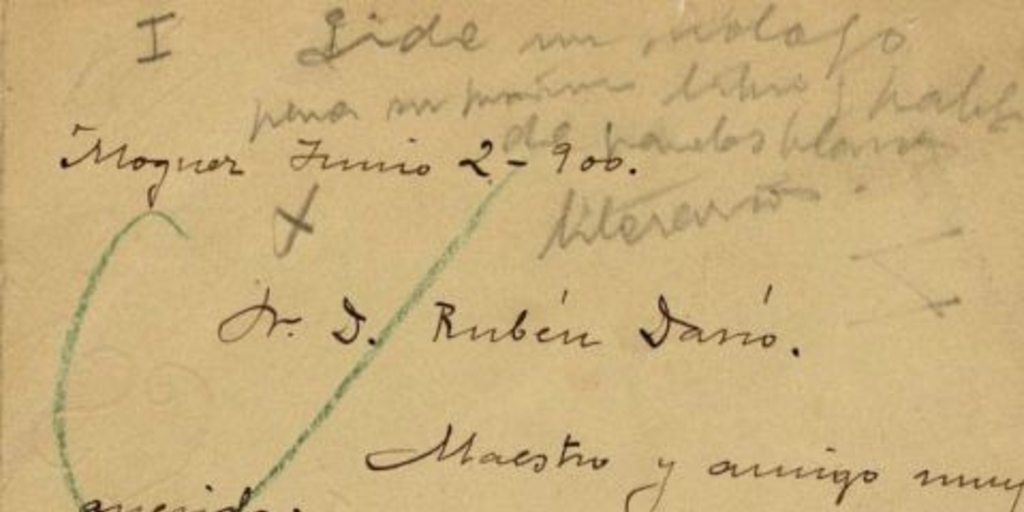 I Pide un prólogo
para su primer libro y habla
de
Moguer Junio 2-900.
literarios.
X
Sr. D. Rubén Darío.
Maestro y amigo muy
querido: